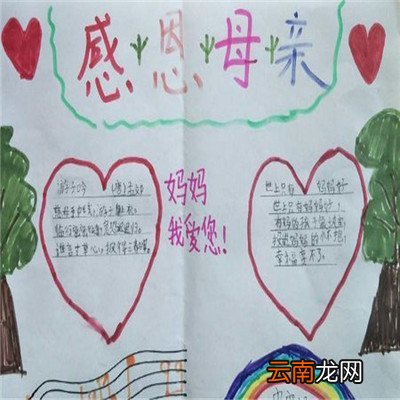 感恩母亲
游子吟 (唐)孟郊
慈母手中线,游子身上衣。
临行密密缝,意恐迟迟归。
谁言寸草心,报得三春晖。
妈妈
我爱您!
世上只有 妈妈好
世上只有妈妈好,
幸福享不了。
云南龙网